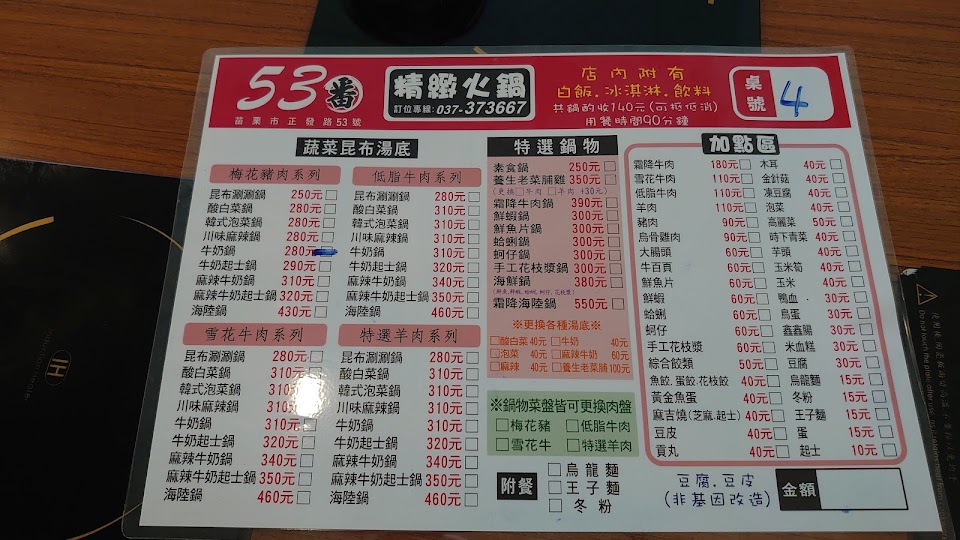 53番
苗栗市正發路53號
精緻火鍋
訂位專線:037-373667
店內附有
白飯.冰淇淋.飲料
共鍋酌收140元(可抵低消)
用餐時間90分鐘
桌號 4
蔬菜昆布湯底
梅花豬肉系列
昆布涮涮鍋 250元
酸白菜鍋 280元
韓式泡菜鍋 280元
川味麻辣鍋 280元
牛奶鍋 280元
牛奶起士鍋 290元
麻辣牛奶鍋 310元
麻辣牛奶起士鍋 320元
海陸鍋 430元
低脂牛肉系列
昆布涮涮鍋 280元
酸白菜鍋 310元
韓式泡菜鍋 310元
川味麻辣鍋 310元
牛奶鍋 310元
牛奶起士鍋 320元
麻辣牛奶鍋 340元
麻辣牛奶起士鍋 350元
海陸鍋 460元
雪花牛肉系列
昆布涮涮鍋 280元
酸白菜鍋 310元
韓式泡菜鍋 310元
川味麻辣鍋 310元
牛奶鍋 310元
牛奶起士鍋 320元
麻辣牛奶鍋 340元
麻辣牛奶起士鍋 350元
海陸鍋 460元
特選羊肉系列
昆布涮涮鍋 280元
酸白菜鍋 310元
韓式泡菜鍋 310元
川味麻辣鍋 310元
牛奶鍋 310元
牛奶起士鍋 320元
麻辣牛奶鍋 340元
麻辣牛奶起士鍋 350元
海陸鍋 460元
特選鍋物
素食鍋 250元
養生老菜脯雞 350元
(更換 牛肉 羊肉 +30元)
霜降牛肉鍋 390元
鮮蝦鍋 300元
鮮魚片鍋 300元
蛤蜊鍋 300元
蚵仔鍋 300元
手工花枝漿鍋 300元
海鮮鍋 380元
霜降海陸鍋 550元
※更換各種湯底※
酸白菜 40元 牛奶 40元
泡菜 40元 麻辣牛奶 60元
麻辣 40元 養生老菜脯 100元
※鍋物菜盤皆可更換肉盤
梅花豬 低脂牛肉
雪花牛 特選羊肉
附餐
烏龍麵
王子麵
冬粉
加點區
霜降牛肉 180元 木耳 40元
雪花牛肉 110元 金針菇 40元
低脂牛肉 110元 凍豆腐 40元
羊肉 110元 泡菜 40元
豬肉 90元 高麗菜 50元
烏骨雞肉 90元 時下青菜 40元
大腸頭 60元 芋頭 40元
牛百頁 60元 玉米筍 40元
鮮魚片 60元 玉米 40元
鮮蝦 60元 鴨血 30元
蛤蜊 60元 鳥蛋 30元
蚵仔 60元 鑫鑫腸 30元
手工花枝漿 60元 米血糕 30元
綜合餃類 50元 豆腐 30元
魚餃.蛋餃.花枝餃 40元 烏龍麵 15元
黃金魚蛋 40元 冬粉 15元
麻吉燒(芝麻.起士) 40元 王子麵 15元
豆皮 40元 蛋 15元
貢丸 40元 起士 10元
豆腐.豆皮
(非基因改造)
金額